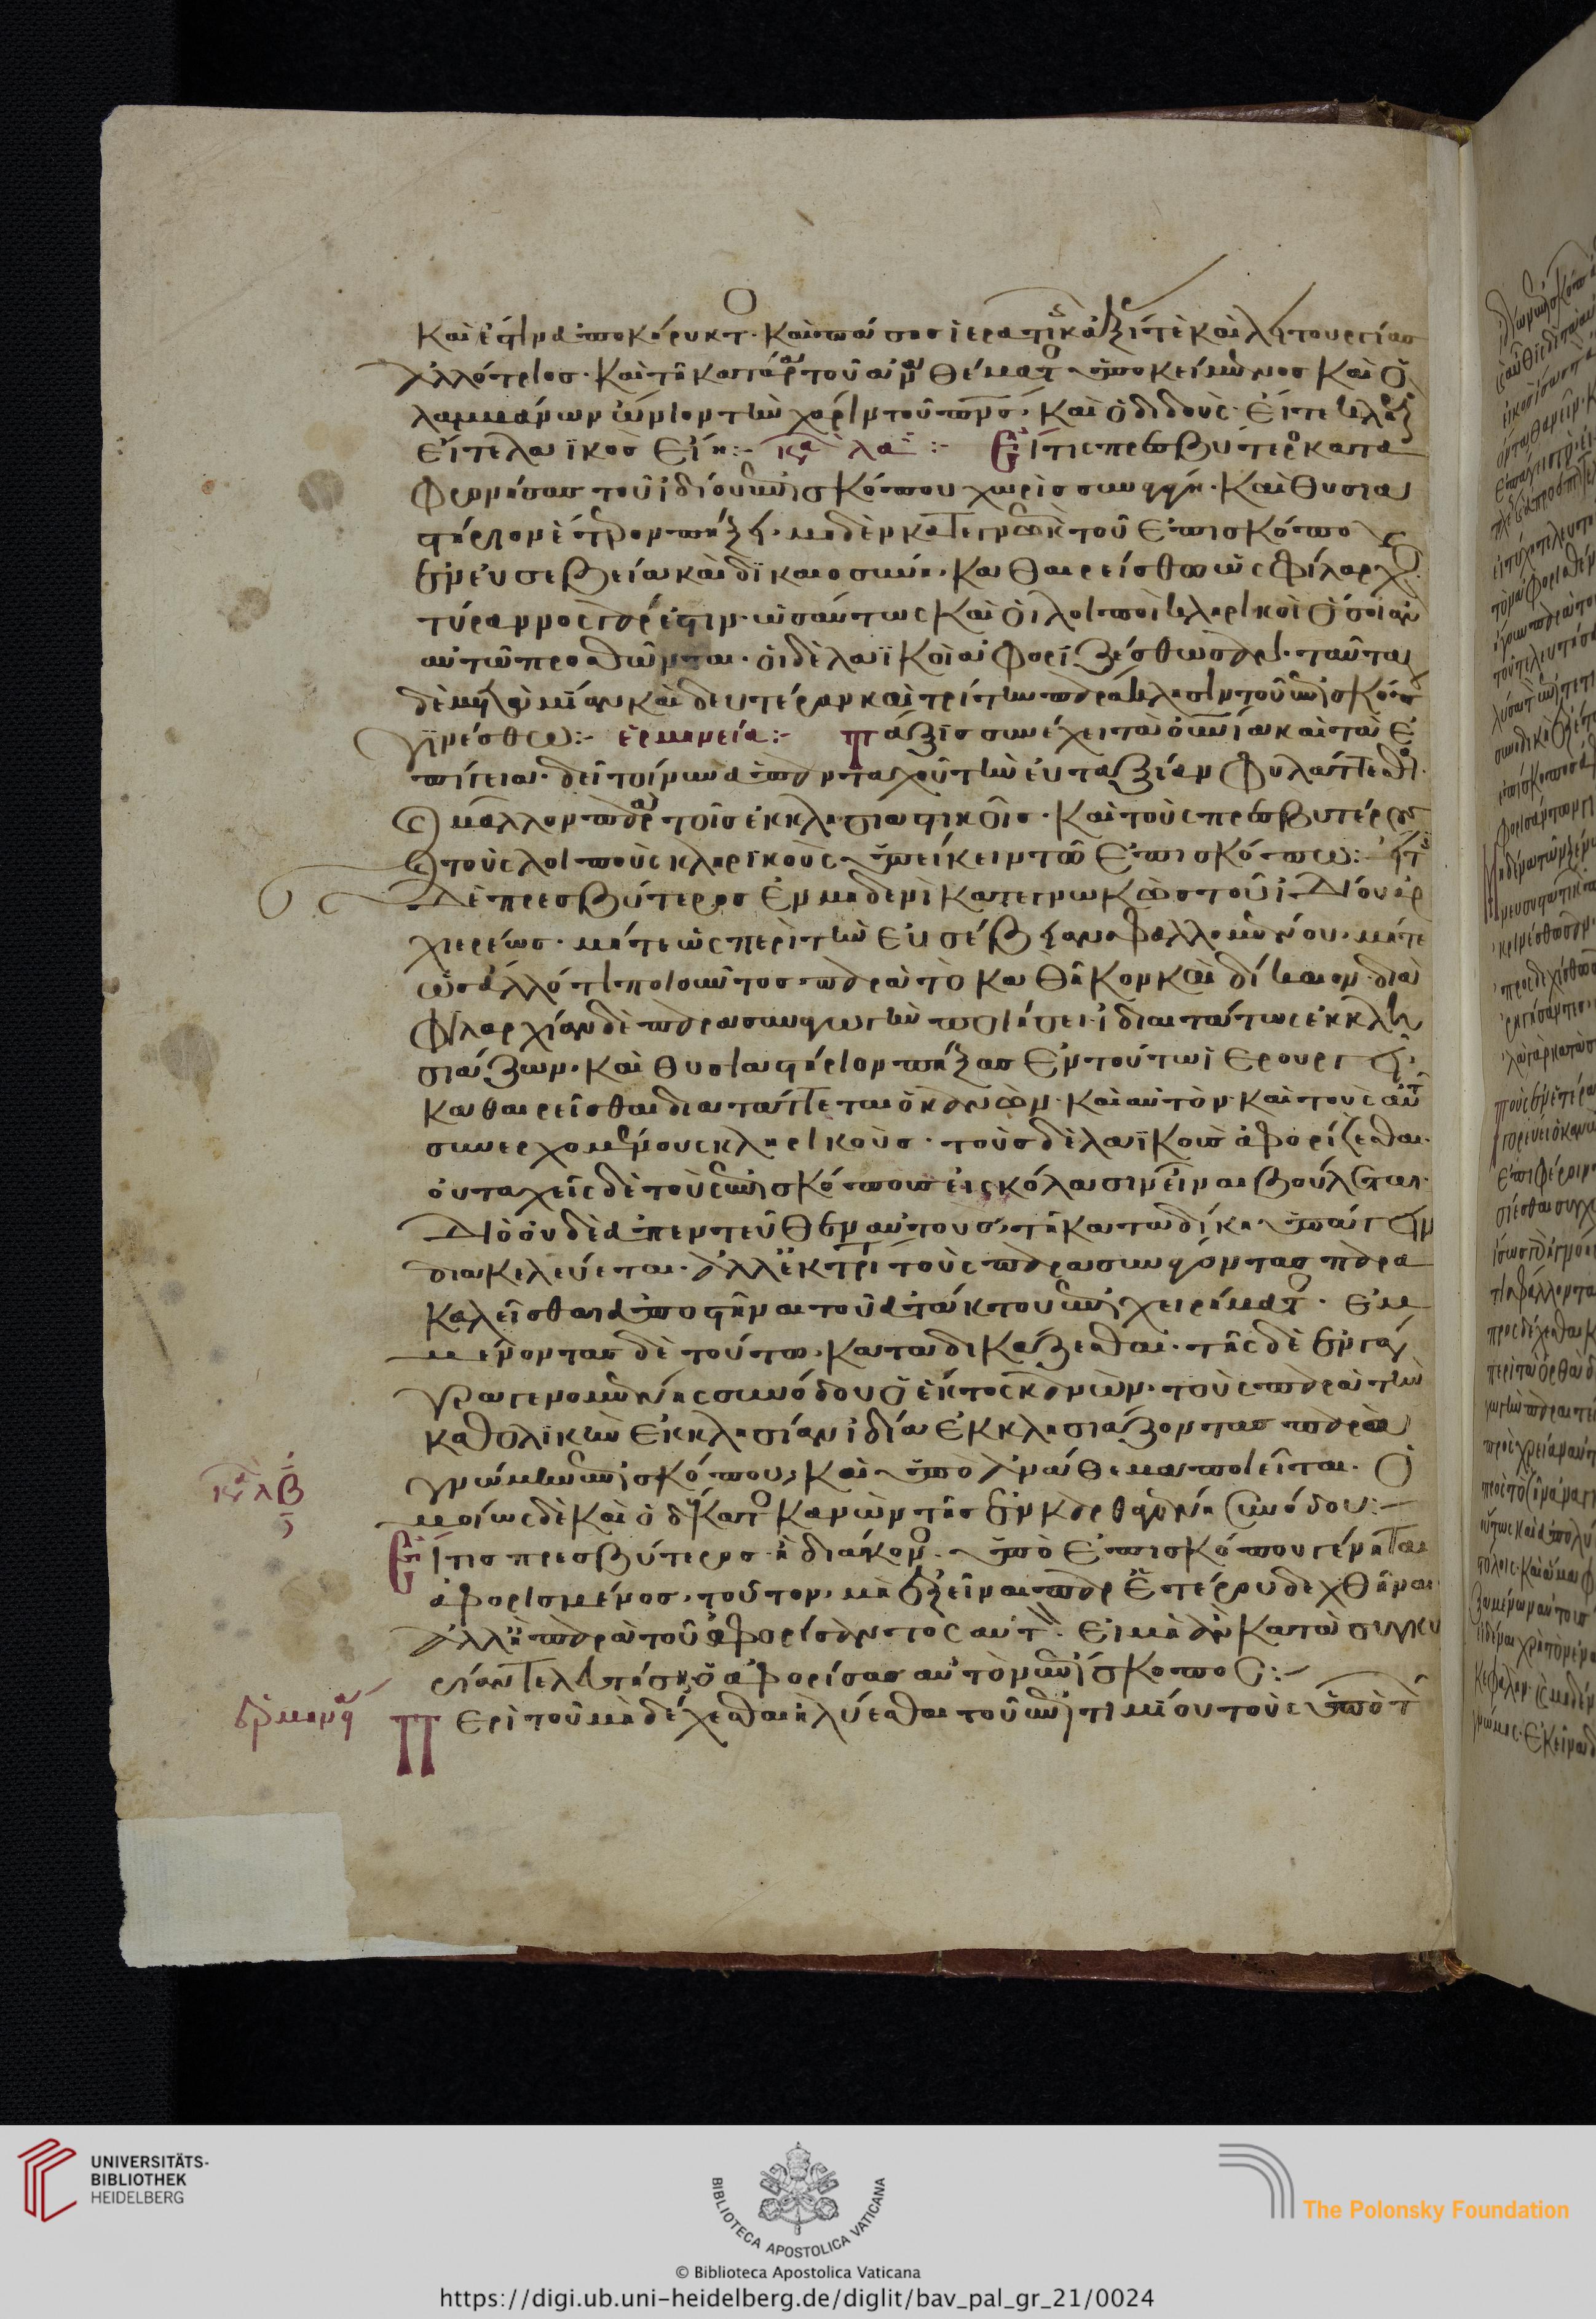 καὶ ἔστιν ἀποκήρυκτ. καὶ πάσης ἱερατικῆς ἀξί τὲ καὶ λειτουργίας
ἀλλότριος. καὶ τῆ κατάρα τοῦ ἀναθέματ ὑποκείμενος καὶ ὁ
λαμβάνων ὤνιον τὴν χάριν τοῦ πνς, καὶ ὁ διδοὺς. εἴτε κληρικ
εἴτε λαϊκὸς εἴη:- κα λα :- Εἴ τις πρεσβύτερο κατα
φρονήσας τοῦ ἰδίου ἐπισκόπου χωρὶς συναγάγη. καὶ θυσια
στήριον ἕτερον πήξη. μηδὲν κατεγνωκὼς τοῦ ἐπισκόπου
ἐν εὐσεβεία καὶ δϊκαιοσύνη. καθαιρείσθω ὡς φίλαρχ.
τύραννος γάρ ἐστιν. ὡσαύτως καὶ οἱ λοιποὶ κληρικοὶ ὅσοι ἂν
αὐτῶ προσθῶνται. οἱ δὲ λαϊκοὶ ἀφοριζέσθωσαν. ταῦτα
δὲ μετὰ μΐαν καὶ δευτέραν καὶ τρίτην παράκλησιν τοῦ ἐπισκόπ
γϊνέσθω:- ἑρμηνεία:- Τάξις συνέχει τὰ οὐράνια καὶ τὰ ἐ
πίγεια. δεῖ τοίνυν ἁπανταχοῦ τὴν εὐταξίαν φυλάττεσθ.
καὶ μᾶλλον παρὰ τοῖς ἐκκλησιαστικοῖς. καὶ τοὺς πρεσβυτέρους
καὶ τοὺς λοιποὺς κληρικοὺς ὑπείκειν τῶ ἐπισκόπω:- εἴ τις
δὲ πρεσβύτερος ἐν μηδενὶ κατεγνωκὼς τοῦ ἰδίου ἀρ
χιερέως. μήτε ὡς περὶ τὴν εὐσέβειαν σφαλλομένου. μήτε
ὡς ἄλλό τι ποιοῦντος παρὰ τὸ καθῆκον καὶ δίκαιον. διὰ
φιλαρχίαν δὲ παρασυναγωγὴν ποιήσει. ἰδία τούτως ἐκκλη
σιάζων. καὶ θυσιαστήριον πήξας ἐν τούτω ἱερουργεῖ.
καθαιρεῖσθαι διατάττεται ὁ κανών. καὶ αὐτὸν. καὶ τοὺς αὐτ
συνερχομένους κληρικοὺς. τοὺς δὲ λαϊκοὺς ἀφορίζεσθαι.
οὐ ταχεῖς δὲ τοὺς ἐπισκόπους εἰς κόλασιν εἶναι βούλεται.
διὸ οὐδὲ ἀπεντεῦθεν αὐτοὺς τῆ καταδίκη ὑπάγειν
διακελεύεται. ἀλλ' ἐκ τρί τοὺς παρασυνάγοντας παρα
καλεῖσθαι ἀποστῆναι τοῦ ἀτάκτου ἐπιχειρήματ. ἐμ
μένοντας δὲ τούτω. καταδικάζεσθαι. τῆς δὲ ἐν γάγ
γρα γενομένης συνόδου ὁ ἕκτος κανὼν. τοὺς παρὰ τὴν
καθολικὴν ἐκκλησίαν ἰδία ἐκκλησιάζοντας παρὰ
γνώμην ἐπισκόπου, καὶ ὑπὸ ἀνάθεμα ποιεῖται. ὁ
μοίως δὲ καὶ ὁ δέκατο κανὼν τῆς ἐν καρθαγένη συνόδου:-
κα λβ
Εἴ τις πρεσβύτερος ἢ διάκον. ὑπὸ ἐπισκόπου γένηται
ἀφορισμένος, τοῦτον, μὴ ἐξεῖναι παρ' ἑτέρου δεχθῆναι
ἀλλ' ἢ παρὰ τοῦ ἀφορίσαντος αὐτ. εἰ μὴ ἂν κατὰ συγκυ
ρίαν τελευτήση ὁ ἀφορίσας αὐτὸν ἐπίσκοπος:-
ἑρμην
Περὶ τοῦ μὴ δέχεσθαι ἢ λύεσθαι τοῦ ἐπιτιμίου τοὺς ὑπὸ τ
UNIVERSITÄTS-
BIBLIOTHEK
HEIDELBERG
BIBLIOTECA APOSTOLICA VATICANA
The Polonsky Foundation
© Biblioteca Apostolica Vaticana
https://digi.ub.uni-heidelberg.de/diglit/bav_pal_gr_21/0024